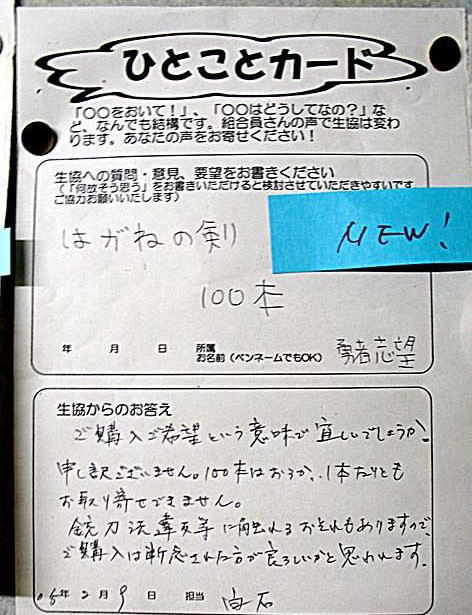 ひとことカード
「〇〇をおいて!」、「〇〇はどうしてなの?」な
ど、なんでも結構です。組合員さんの声で生協は変わ
ります。あなたの声をお寄せください!
生協への質問・意見、要望をお書きください
(「何故そう思う」をお書きいただけると検討させていただきやすいです
ご協力お願いいたします)
はがねの剣
NEW!
100本
年 月 日 所属
お名前(ペンネームでもOK) 勇者志望
生協からのお答え
ご購入ご希望という意味で宜しいでしょうか。
申し訳ございません。100本はおろか、1本たりとも
お取り寄せできません。
銃刀法違反等に触れるおそれもありますので、
ご購入は断念された方が良ろしいかと思われます。
'05年 2月 9日 担当 白石